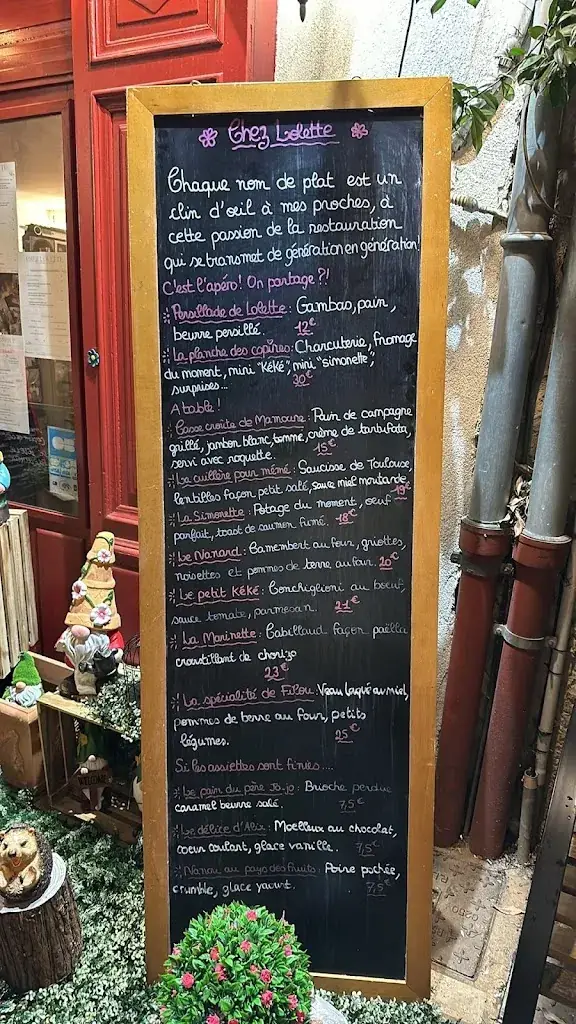 Chez Lolette
Chaque nom de plat est un
clin d'oeil à mes proches, à
cette passion de la restauration
qui se transmet de génération en génération!
C'est l'apéro! On partage ?!
Persillade de Lolette : Gambas, pain,
beurre persillé. 12€
La planche des copines : Charcuterie, fromage
du moment, mini "kéké", mini "simonette",
surprises... 30€
A table !
Casse croûte de Mamoune : Pain de campagne
grillé, jambon blanc, tomme, crème de tartufata,
servi avec roquette. 15€
La cuillère pour mémé : Saucisse de Toulouse,
lentilles façon petit salé, sauce miel moutarde 19€
La Simonette : Potage du moment, oeuf
parfait, toast de saumon fumé. 18€
Le Nanard : Camembert au four, griottes,
noisettes et pommes de terre au four. 20€
Le petit Kéké : Conchiglioni au boeuf,
sauce tomate, parmesan. 21€
La Marinette : Cabillaud façon paëlla
croustillant de chorizo
23€
La spécialité de Filou : Veau laqué au miel,
pommes de terre au four, petits
légumes. 25€
Si les assiettes sont finies....
Le pain du père Jo-jo : Brioche perdue
caramel beurre salé. 7,5€
Le délice d'Alix : Moelleux au chocolat,
coeur coulant, glace vanille. 7,5€
Nanou au pays des fruits : Poire pochée,
crumble, glace yaourt. 7,5€